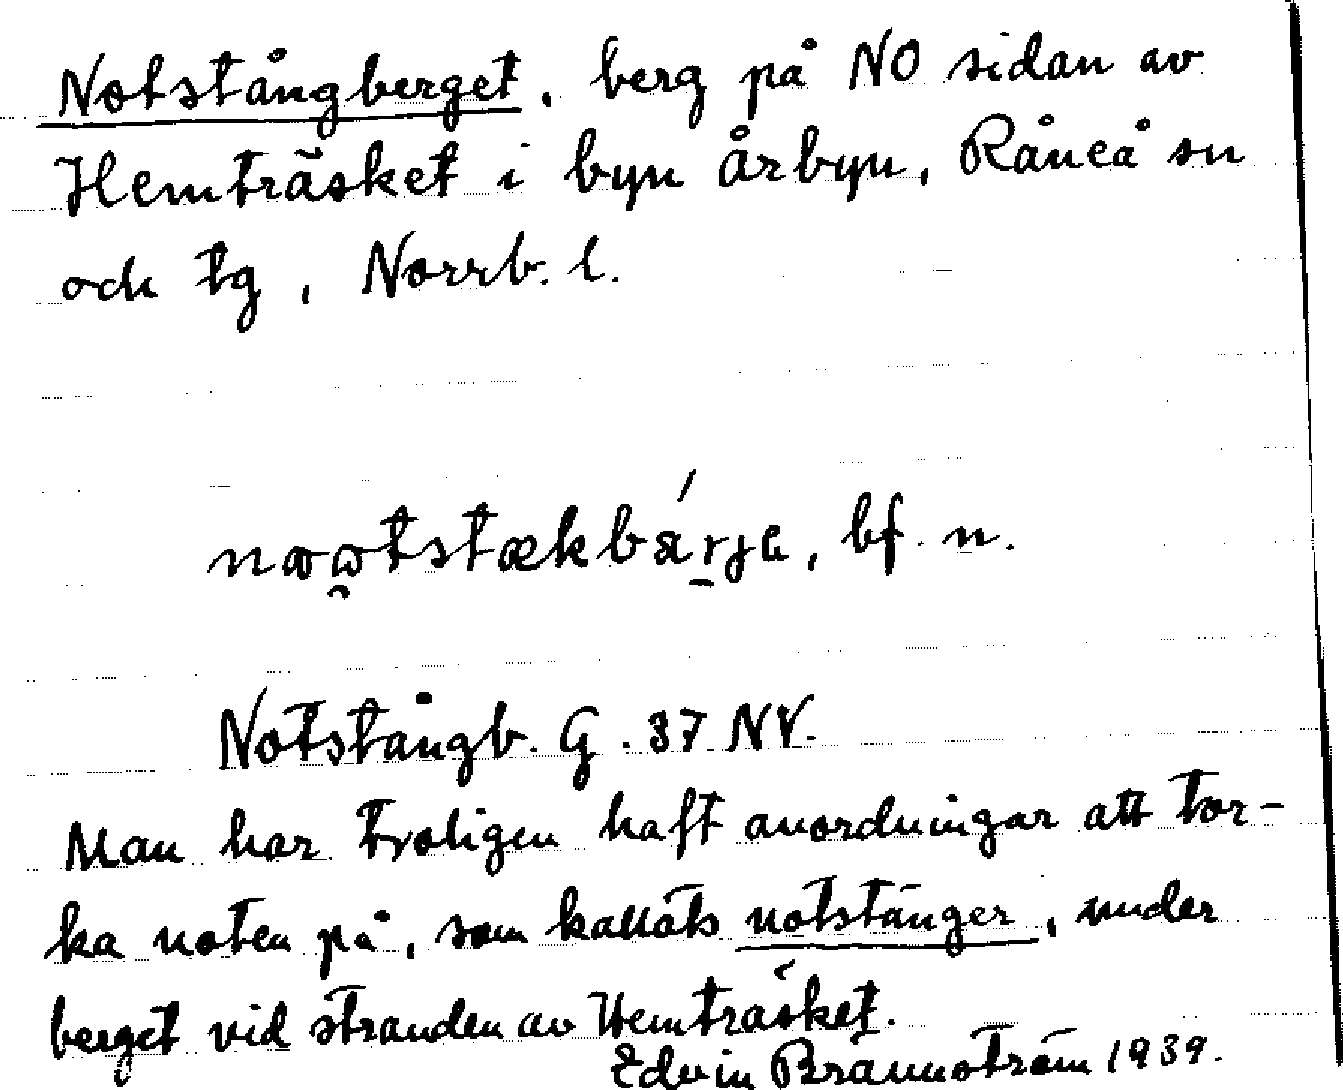 Notstångberget, berg på NO sidan av
Hemträsket i byn Årbyn, Råneå sn
och tg, Norrb. l.
bf. n.
Notstångb. G. 37 NV.
Man har troligen haft anordningar att tor-
ka noten på, som kallats notstänger, under
berget vid stranden av Hemträsket.
Edvin Brännström 1939.